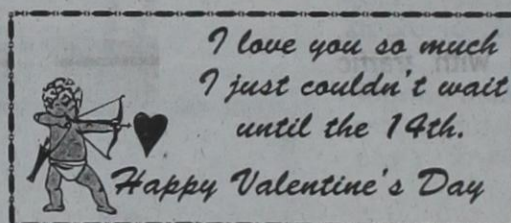 I love you so much
I just couldn't wait
until the 14th.
Happy Valentine's Day